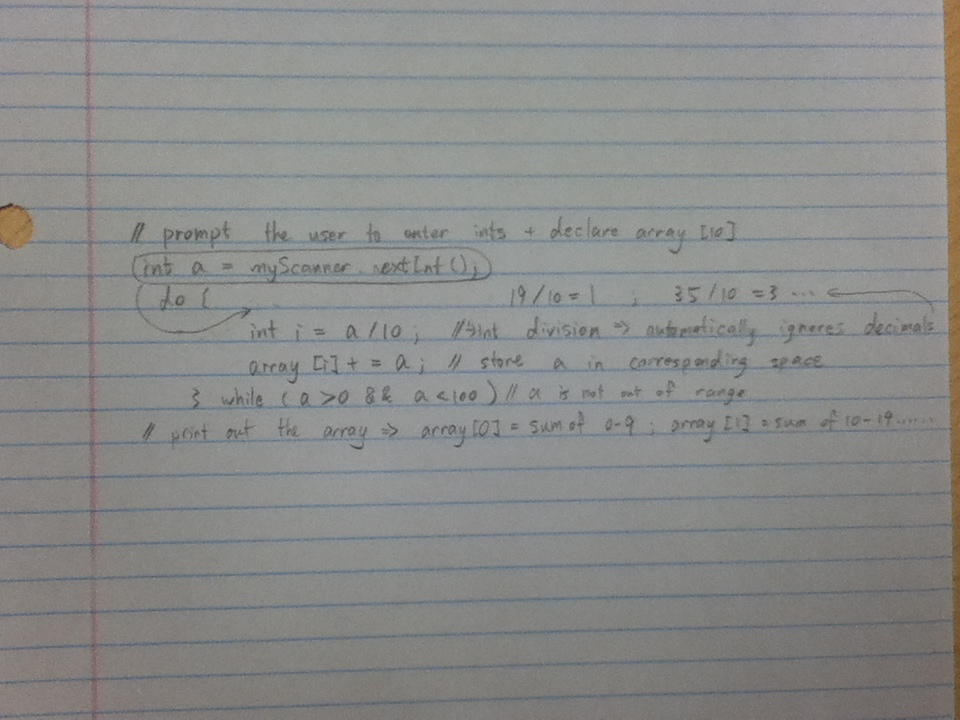 // prompt the user to enter ints + declare array [10]
int a = myScanner.nextInt();
do {
19/10 = 1 ; 35/10 = 3 ...
int i = a/10; //→int division ⇒ automatically ignores decimals
array [i] += a; // store a in corresponding space
} while (a>0 && a<100) // a is not out of range
// print out the array ⇒ array[0] = sum of 0-9 ; array [1] = sum of 10-19......